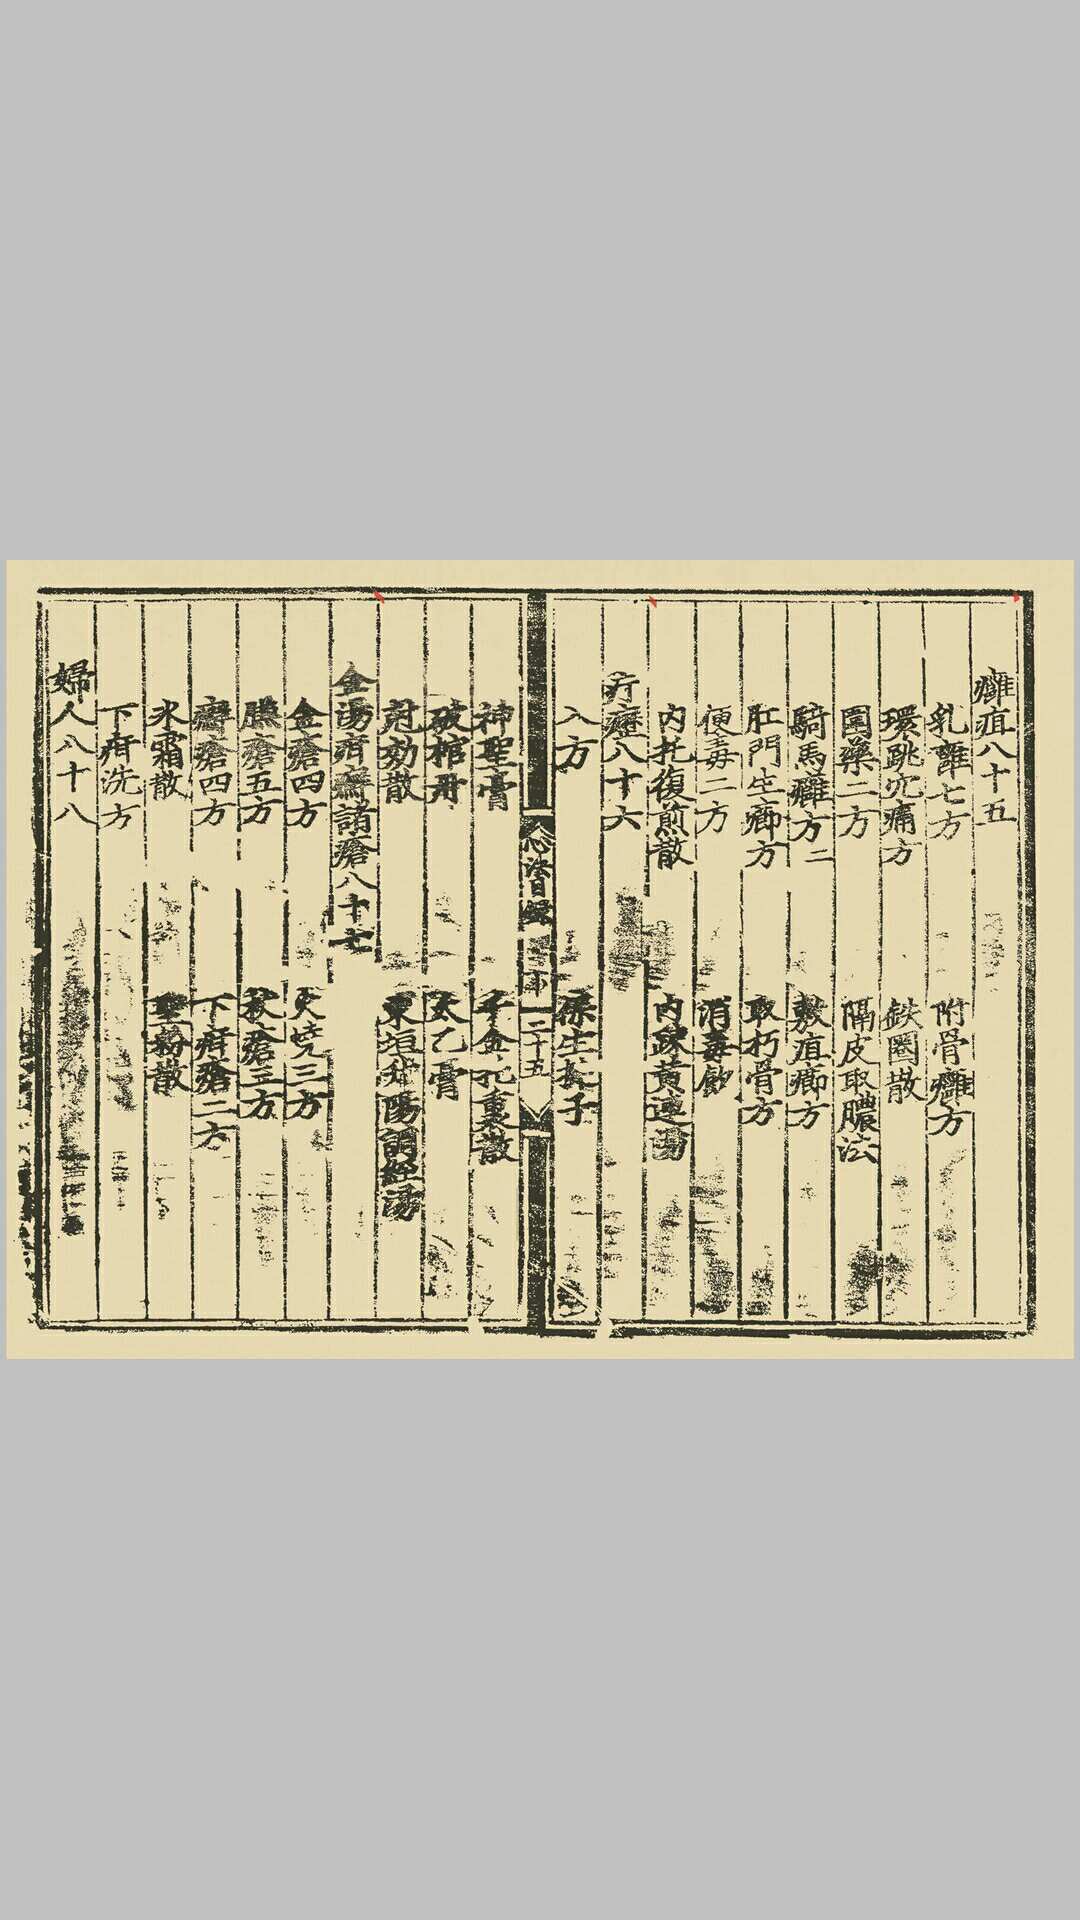 癰疽八十五
乳癰七方 附骨癰方
環跳穴痛方 鉄圈散
圍藥二方 隔皮取膿法
騎馬癰方二 敷疽癤方
肛門生癤方 取朽骨方
便毒二方 消毒飲
内托復煎散 内踈黄連湯
疔癧八十六
入方 保生挺子
二十五
神聖膏 千金托裏散
破棺丹 太乙膏
尅効散 東垣升陽調經湯
金湯疳癬諸瘡八十七
金瘡四方 火燒三方
臁瘡五方 杖瘡三方
癬瘡四方 下疳瘡二方
氷霜散 聖粉散
下疳洗方
婦人八十八